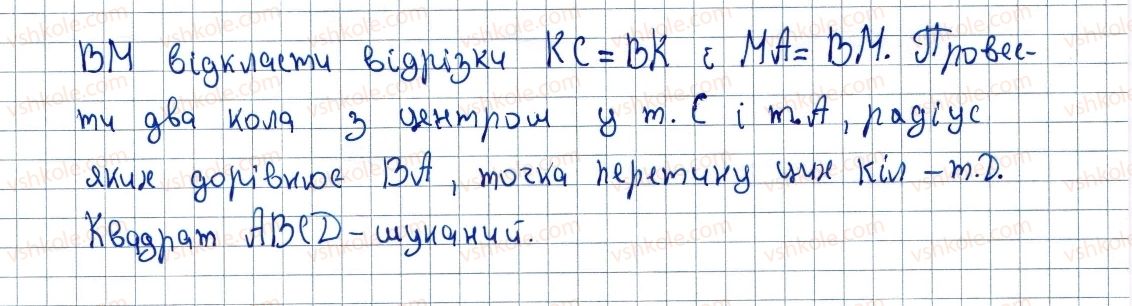 ВМ відкласти відрізки КС = ВК і МА = ВМ. Провес-
ти два кола з центром у т. С і т.А, радіус
яких дорівнює ВА, точка перетину цих кіл – т.D.
Квадрат ABCD – шуканий.